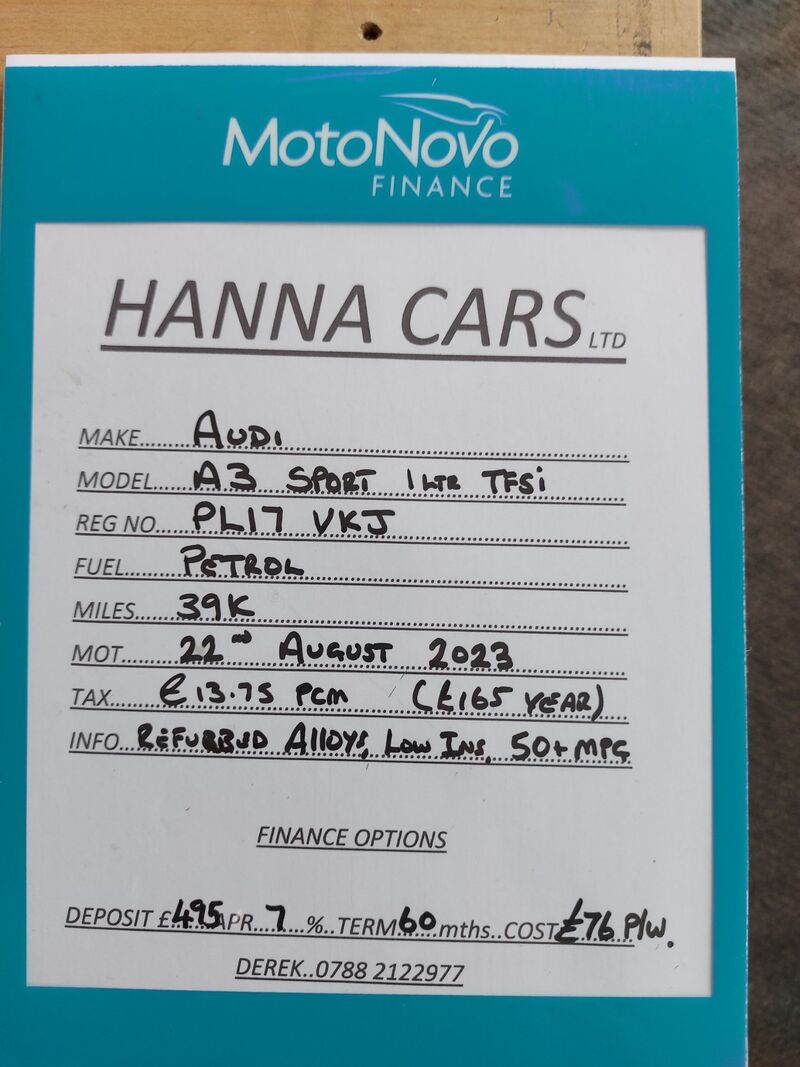 MotoNovo
FINANCE
HANNA CARS LTD
MAKE......AUDI
MODEL....A3 SPORT 1 LTR TFSi
REG NO....PL17 VKJ
FUEL.......PETROL
MILES.....39K
MOT.......22nd AUGUST 2023
TAX.......£13.75 PCM (£165 YEAR)
INFO..REFURBSD ALLOYS, LOW INS, 50+ MPG
FINANCE OPTIONS
DEPOSIT £495 APR...7...%..TERM 60 mths..COST £76 P/W.
DEREK..0788 2122977